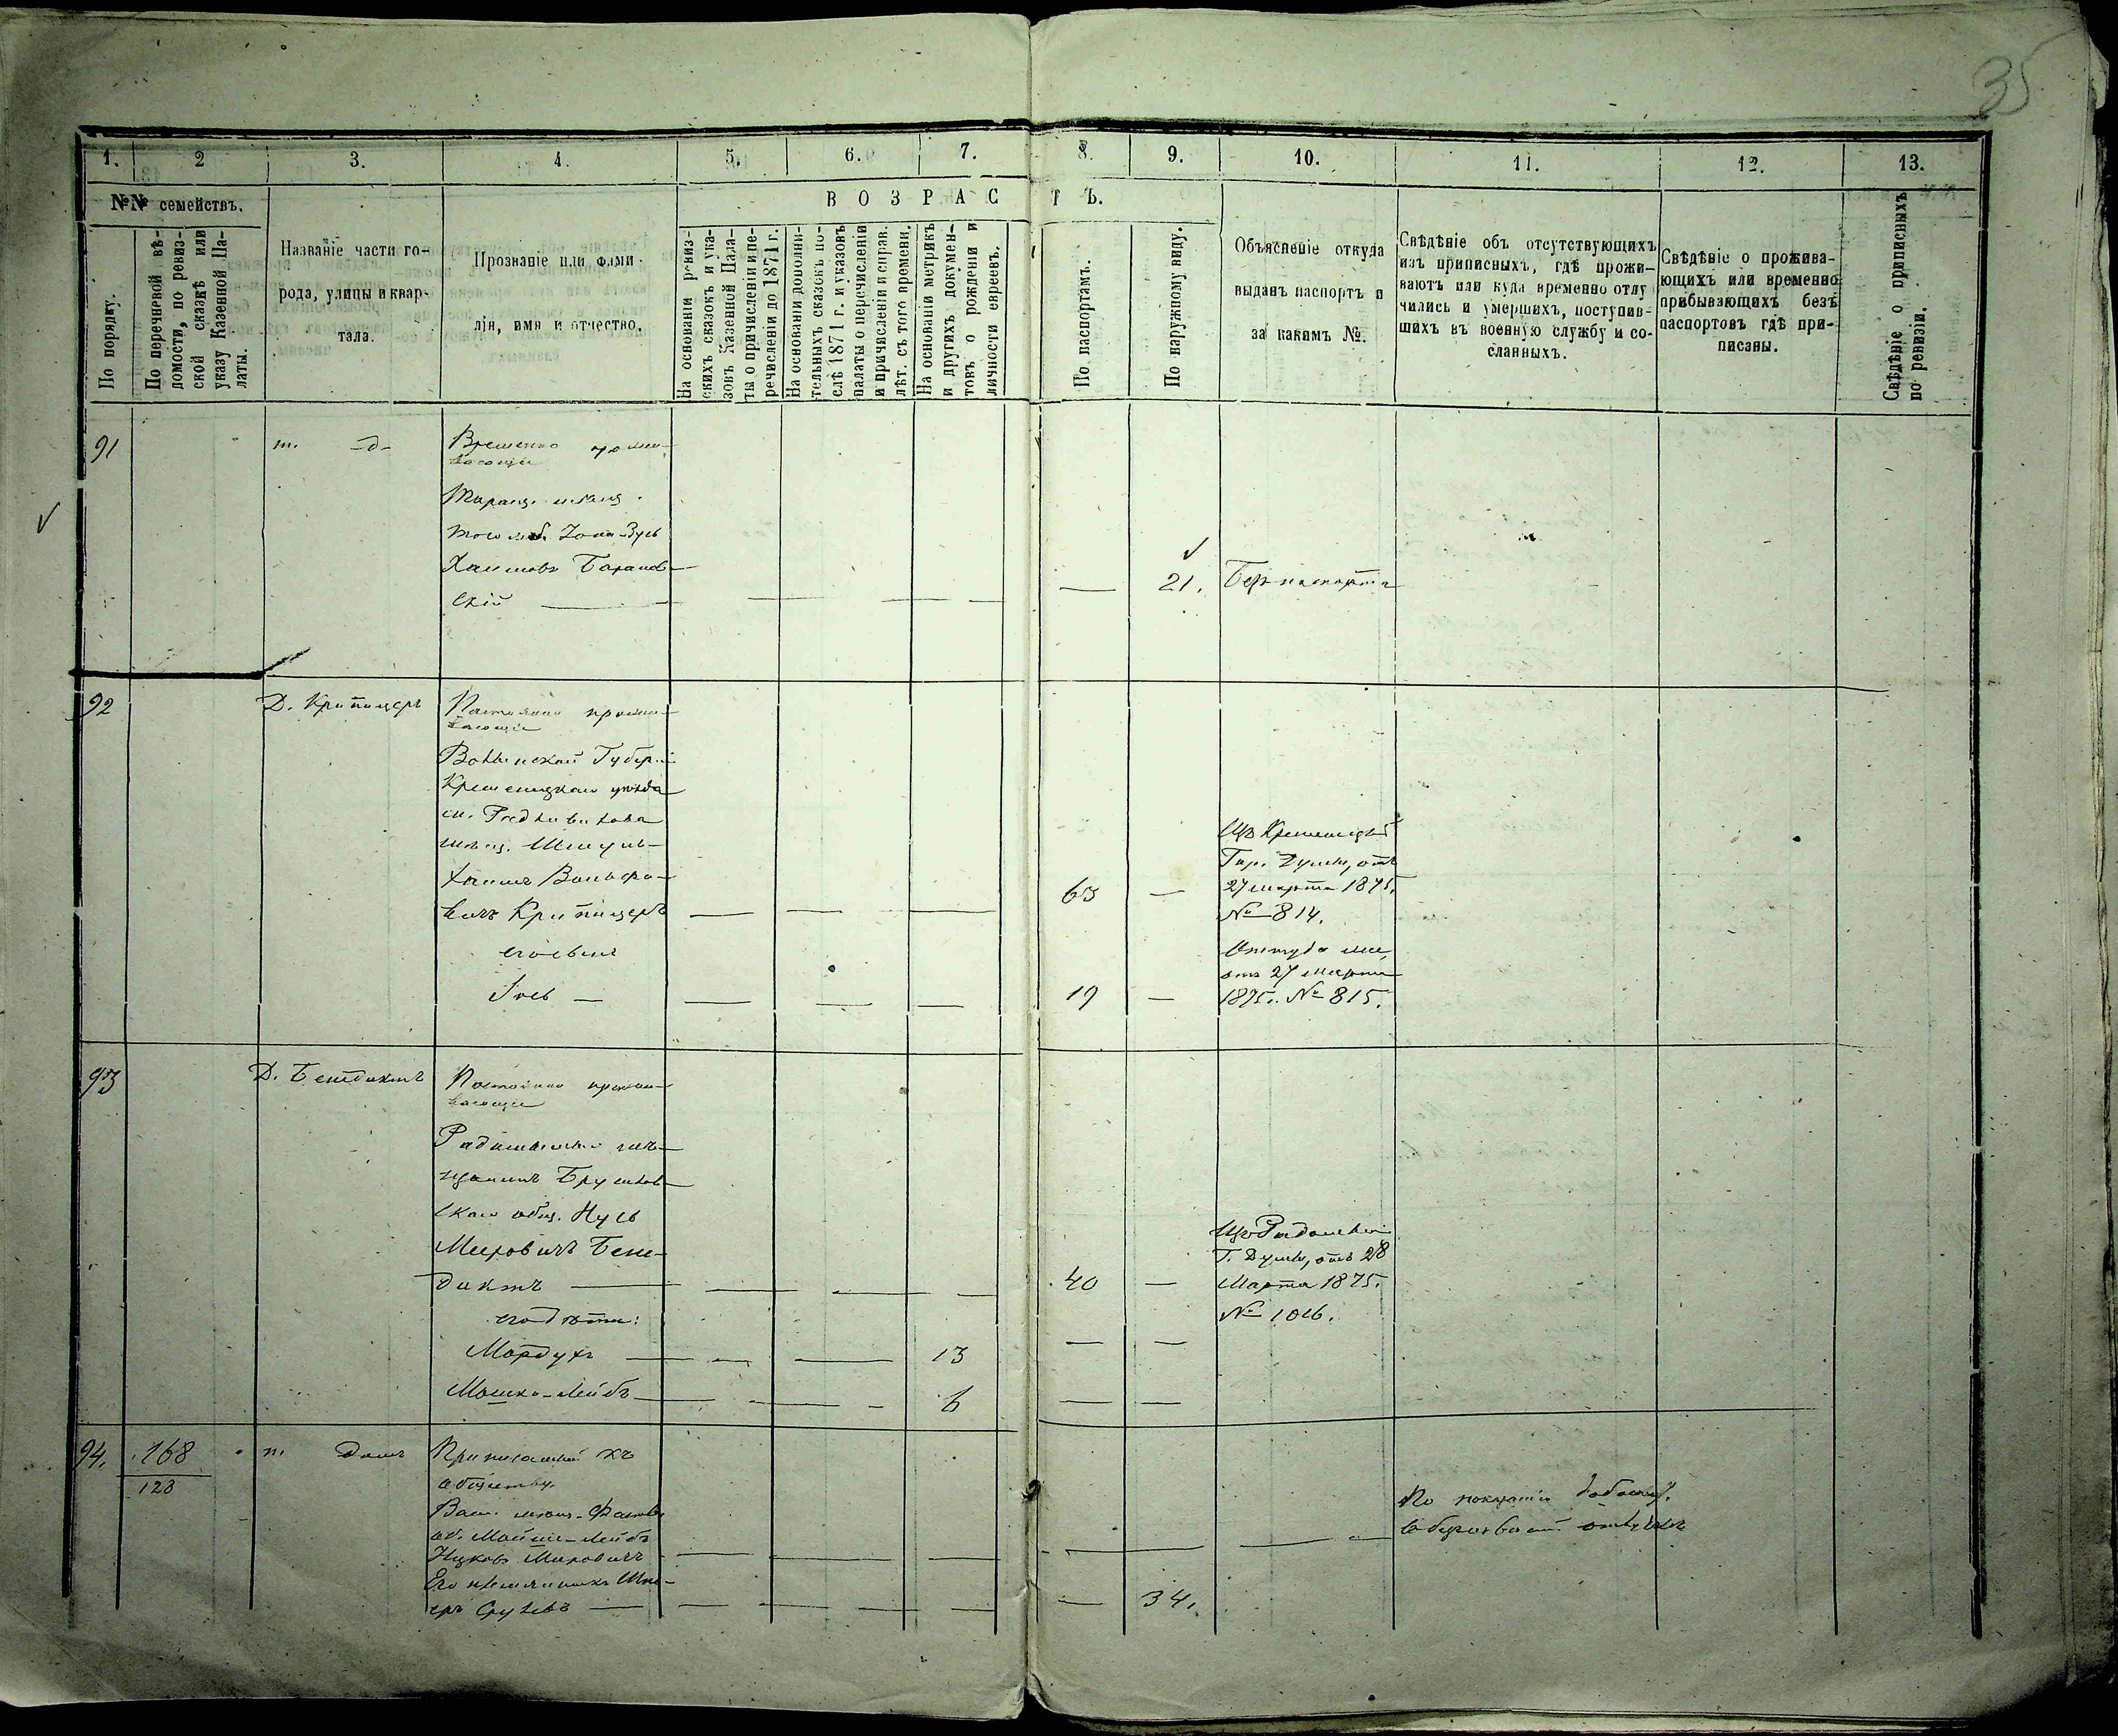 35
1. 2 3. 4. 5. 6. 7. 8. 9. 10. 11. 12. 13.
№№ семействъ.
По порядку.
По перечневой вѣ-
домости, по ревиз-
ской сказкѣ или
указу Казенной Па-
латы.
Названіе части го-
рода, улицы и квар-
тала.
Прозваніе или фами-
лія, имя и отчество.
ВОЗРАСТЪ.
На основаніи ревиз-
скихъ сказокъ и ука-
зовъ Казенной Пала-
ты о причисленіи и пе-
речисленіи до 1871 г.
На основаніи дополни-
тельныхъ сказокъ по-
слѣ 1871 г. и указовъ
палаты о перечисленіи
и причисленіи и справ.
лѣт. съ того времени.
На основаніи метрикъ
и другихъ докумен-
товъ о рожденіи и
личности евреевъ.
По паспортамъ.
По наружному виду.
Объясненіе откуда
выданъ паспортъ и
за какимъ №.
Свѣдѣніе объ отсутствующихъ
изъ приписныхъ, гдѣ прожи-
ваютъ или куда временно отлу
чились и умершихъ, поступив-
шихъ въ военную службу и со-
сланныхъ.
Свѣдѣніе о прожива-
ющихъ или временно
прибывающихъ безъ
паспортовъ гдѣ при-
писаны.
Свѣдѣніе о приписныхъ
по ревизіи.
91 т. -д- Временно прожи-
вающіе
Таращ. мѣщ.
Хаимовъ Баранов-
скій 21. Безъ паспорта
92 Д. Крипицеръ Постоянно прожи-
вающіе
Волынской Губер.
Кременецкаго уѣзда
мѣщ. Шмуль-
Хаимъ Вольфо-
вичъ Крипицеръ 63
Изъ Кременецкой
Гор. Думы, отъ
27 марта 1875.
№ 814.
его сынъ
Іось — 19
Оттуда же,
отъ 27 Марта
1875. № 815.
93 Д. Бенедиктъ Постоянно прожи-
вающіе
Радомысльскій мѣ-
щанинъ Брусилов-
скаго общ. Нусь
Меировичъ Бене-
диктъ 40
Изъ Радомысл.
Г. Думы, отъ 28
Марта 1875.
№ 1016.
его дѣти:
Мордухъ 13
Мошко-Лейбъ 6
94. 168 т. домъ Приписанный къ
123 обществу.
Вас. мѣщ. Фастов.
об. Мойше-Лейбъ
Ицковъ Мировичъ
Его племянникъ
Срулевъ 34.
По показанію